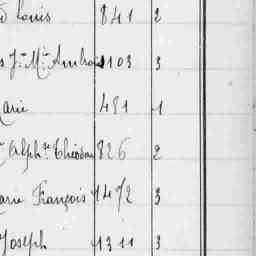 Louis 841 2
Jn Mie Ambrois 1103 3
Marie 481 1
Alphse Théodore 826 2
Marie François 1472 3
Joseph 1311 3